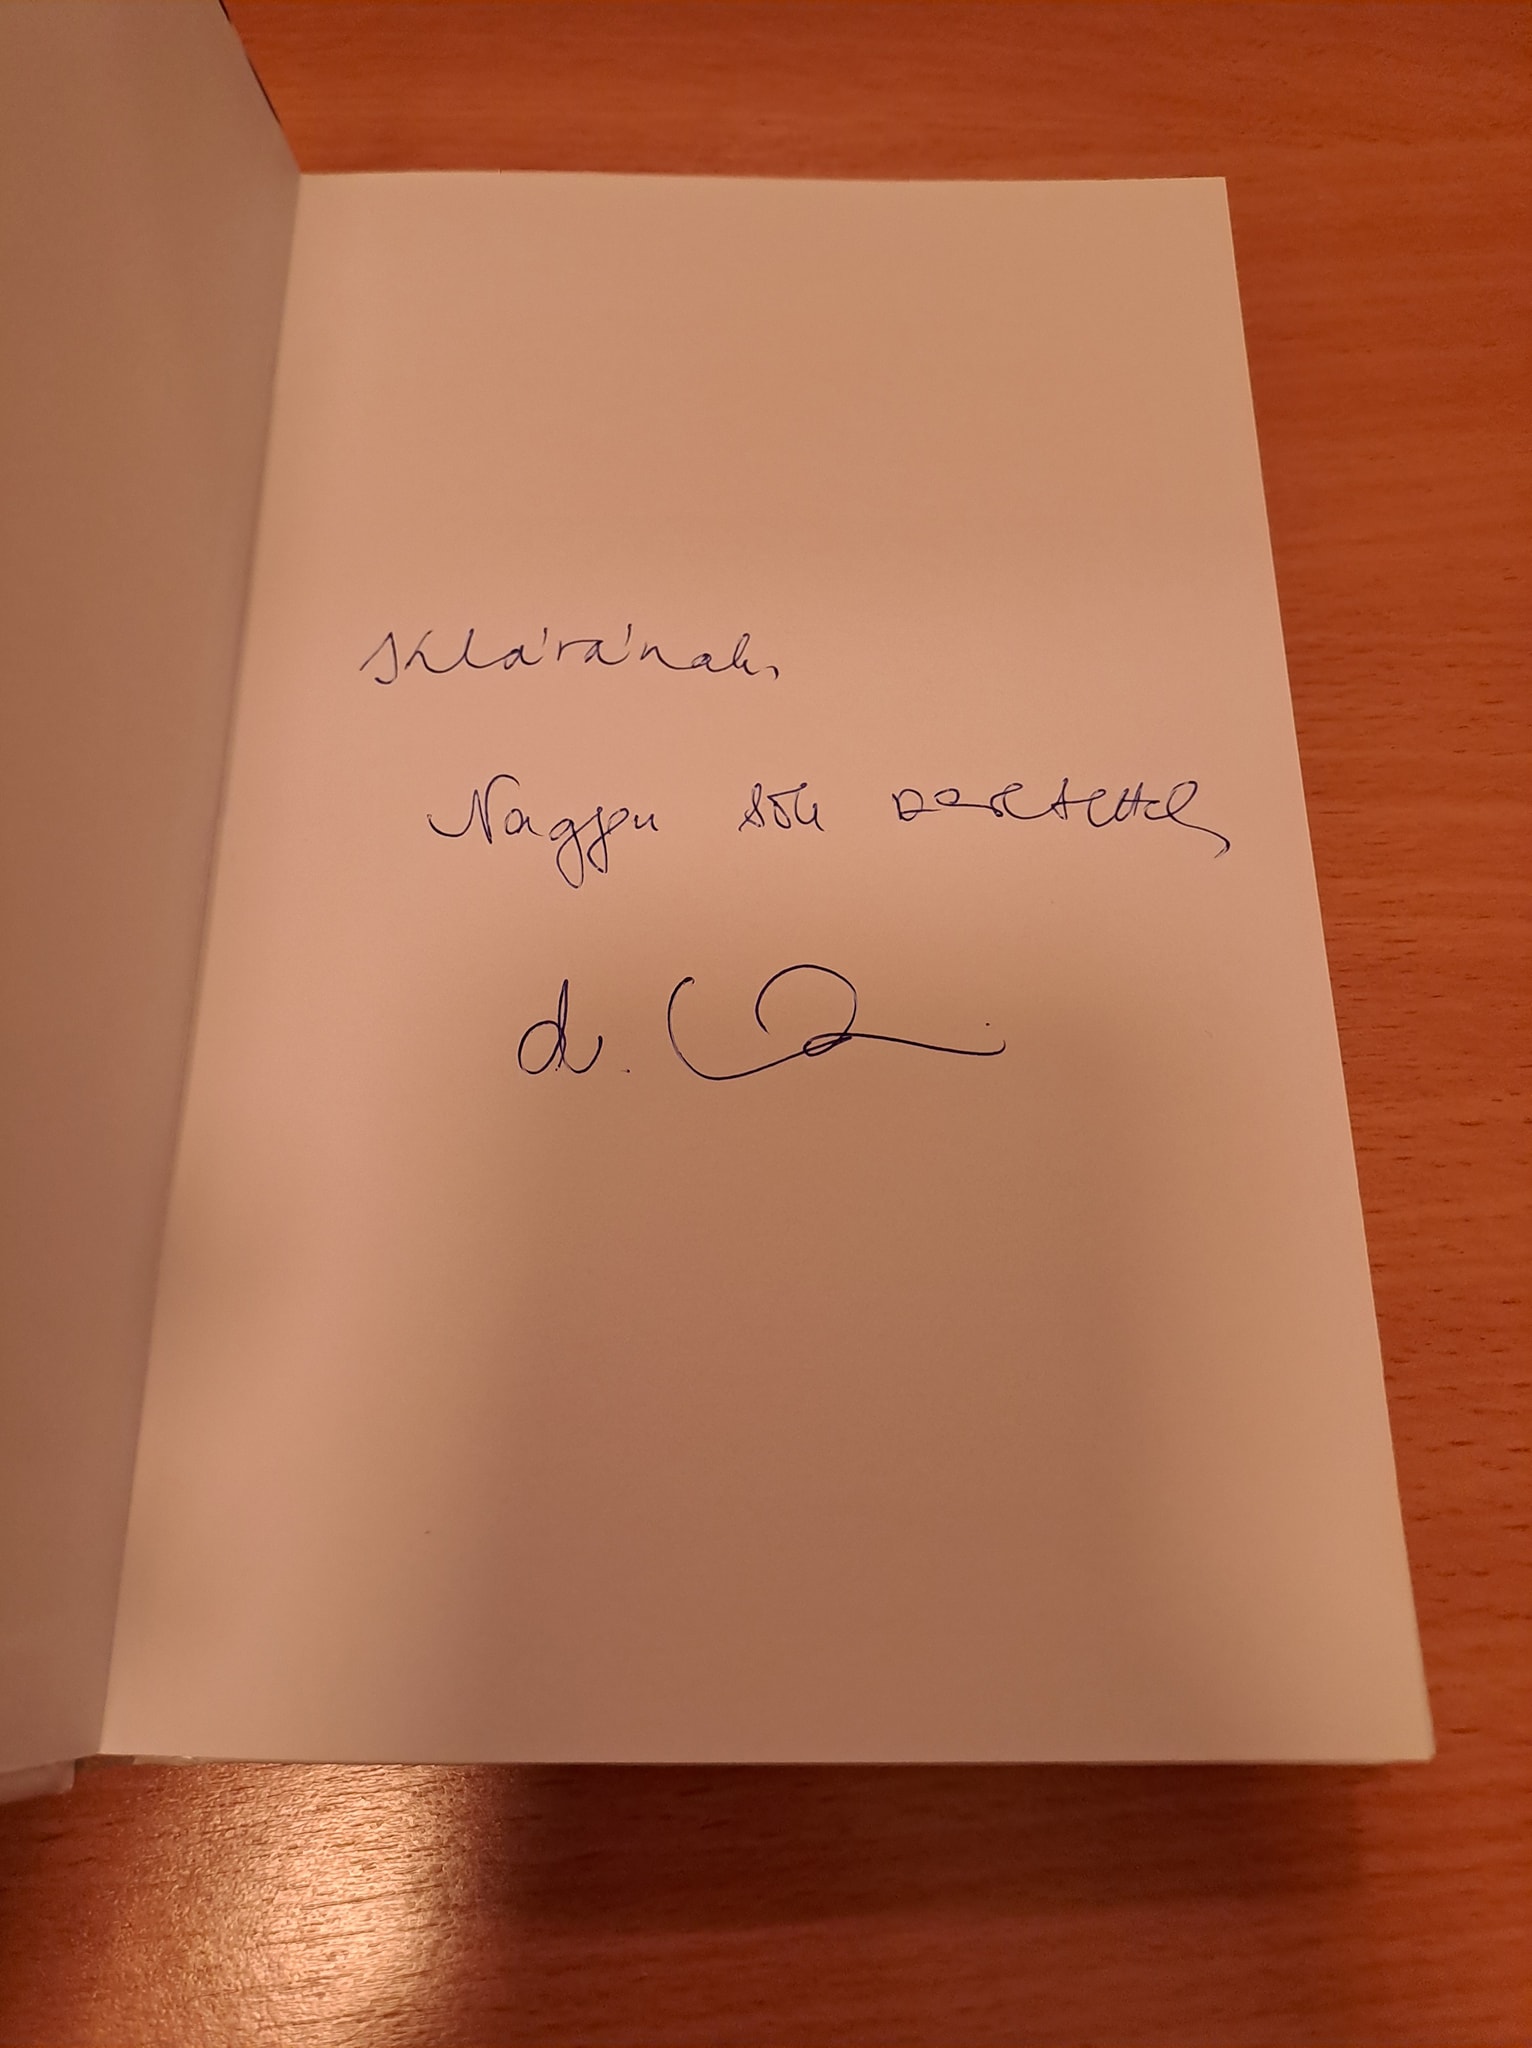 Klárának,
Nagyon sok szeretettel
dr.